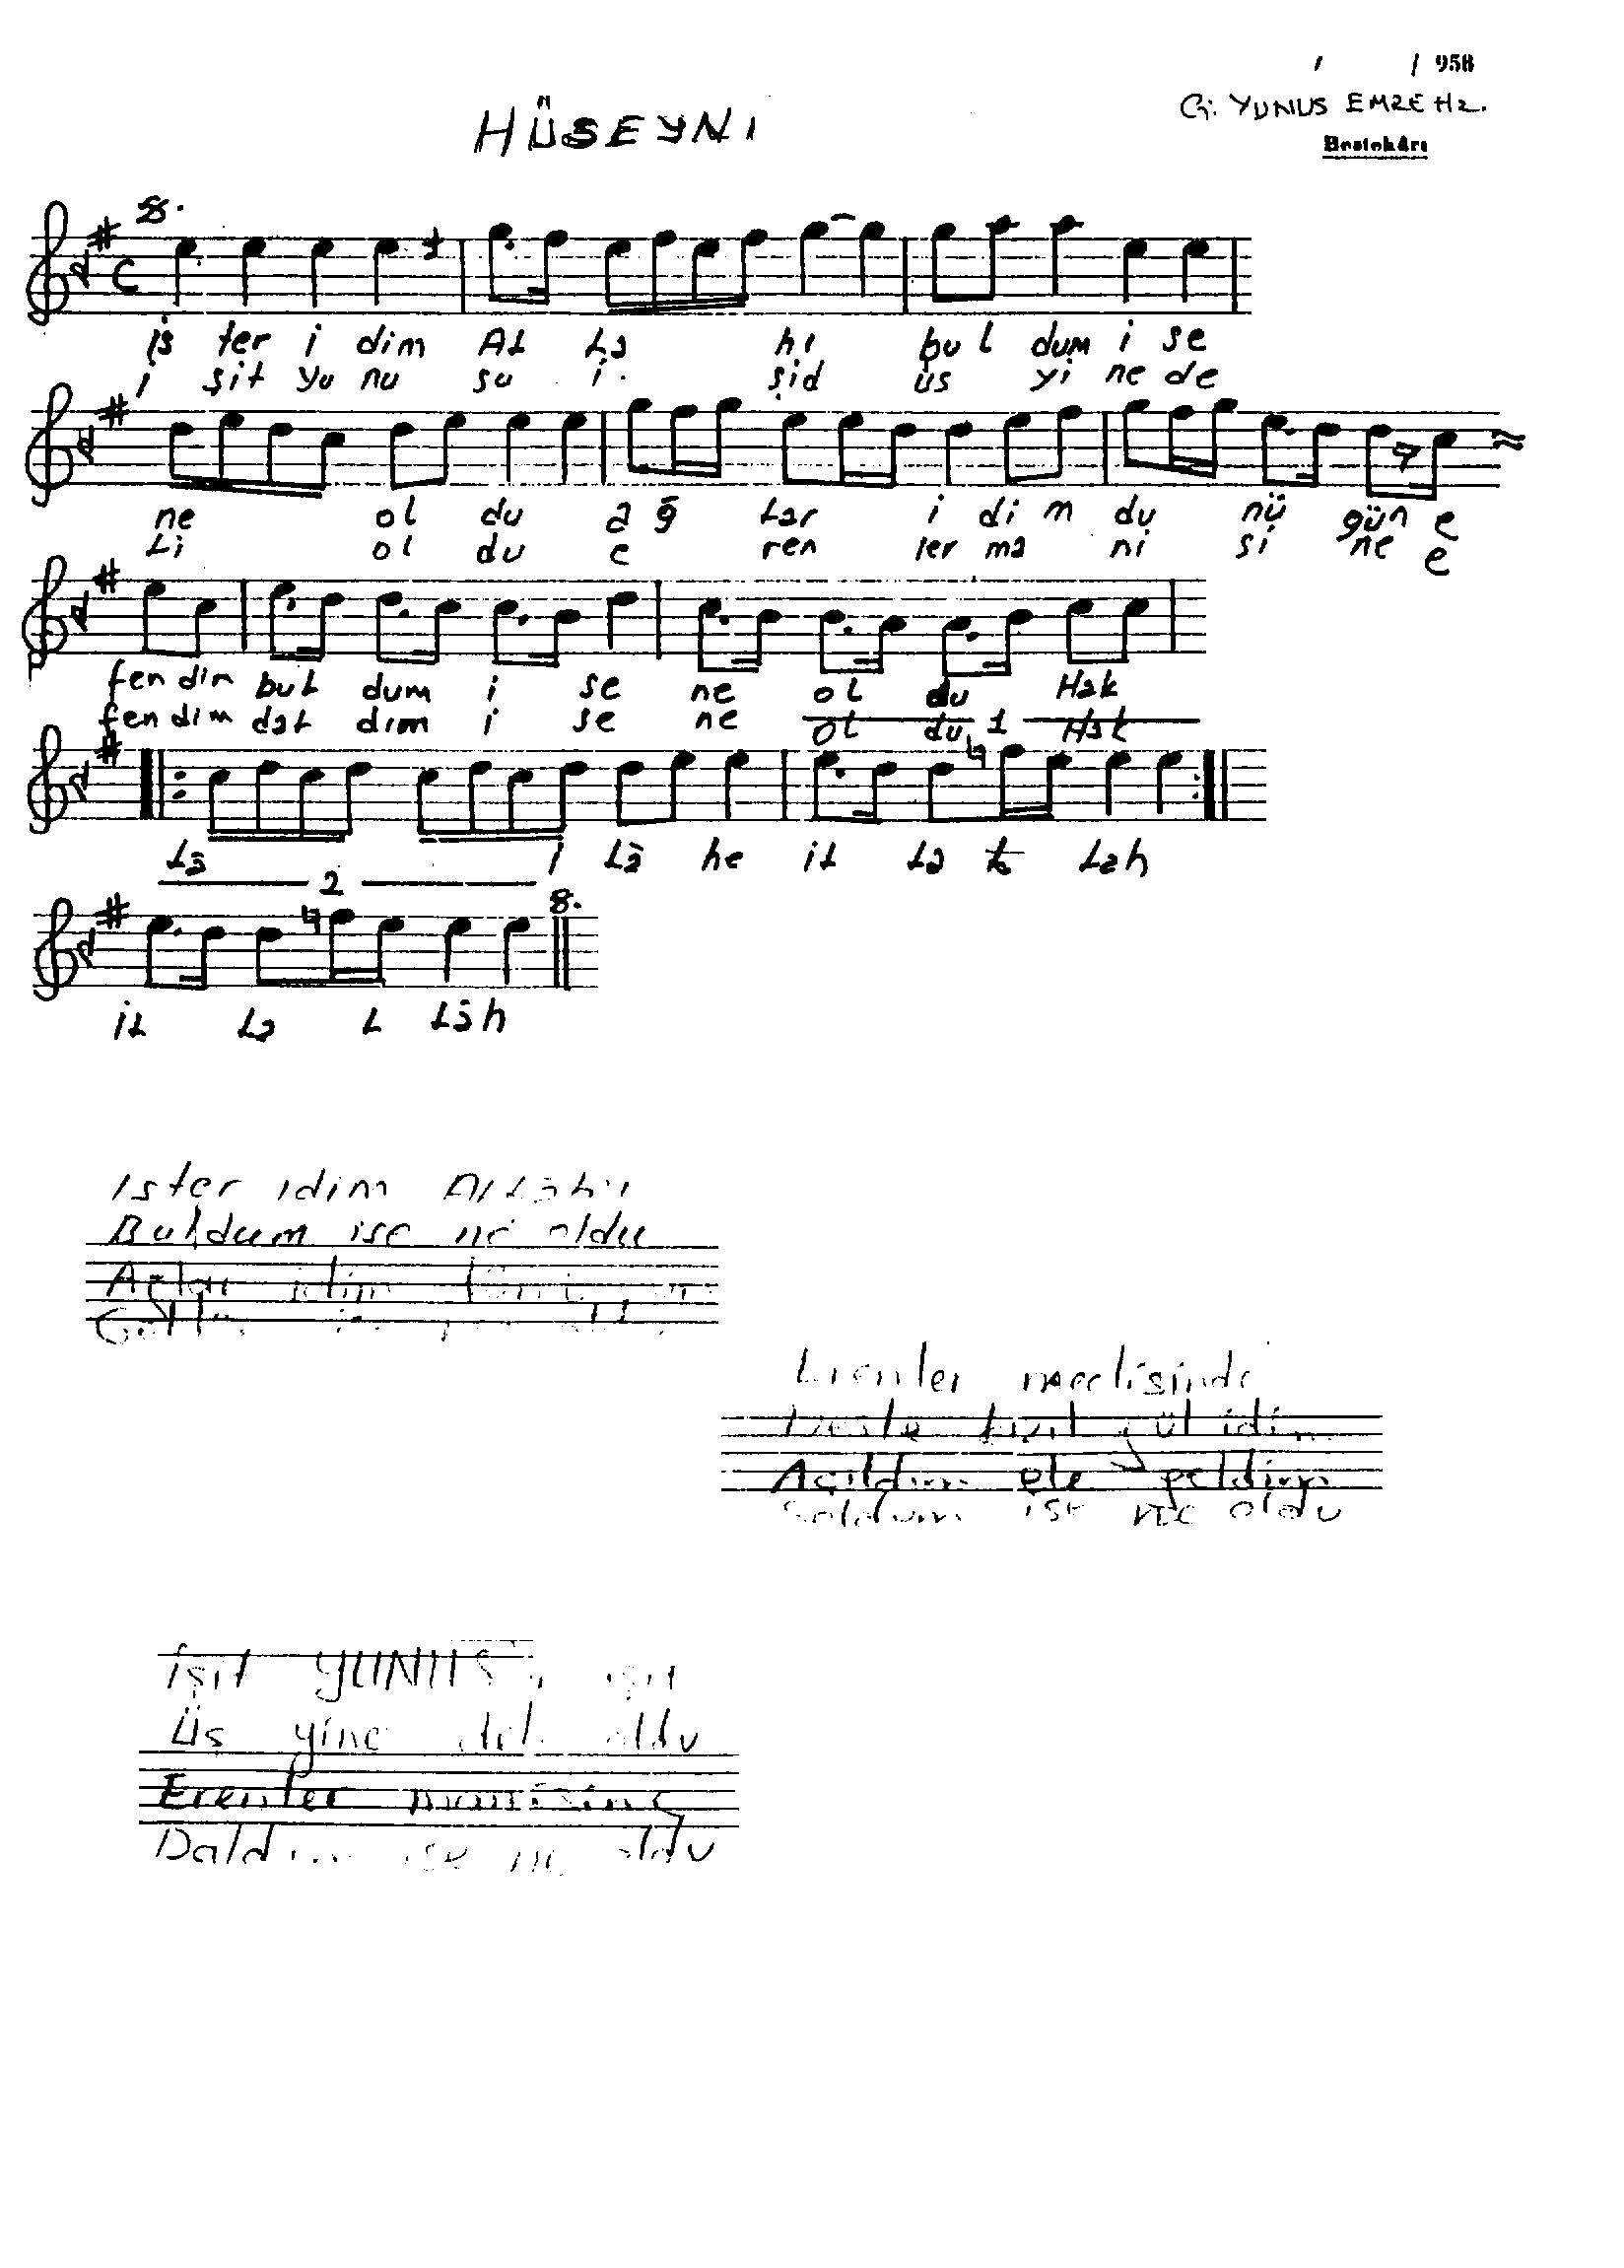 / / 958
G: YUNUS EMRE Hz.
HÜSEYNI Bestekârı
is ter i dim AL La hı bul dum i se
i şit Yu nu su i. şid üs yi ne de
ne ol du a ğ Lar i di m du nü gün e
Li ol du e ren ler ma ni si ne e
fen dim buL dum i se ne ol du Hak
fen dim daL dım i se ne ol du 1 Hak
Lâ i Lâ he iL La Lah
2
iL La L Lâh
Ister idim AlLâhı
Buldum ise ne oldu
Ağlar idim
Erenler meclisinde
Deste kızıl gül idim
Açıldım ele geldim
Soldum ise ne oldu
işit YUNUS işit
Üş yine deli oldu
Erenler manisine
Daldım ise ne oldu